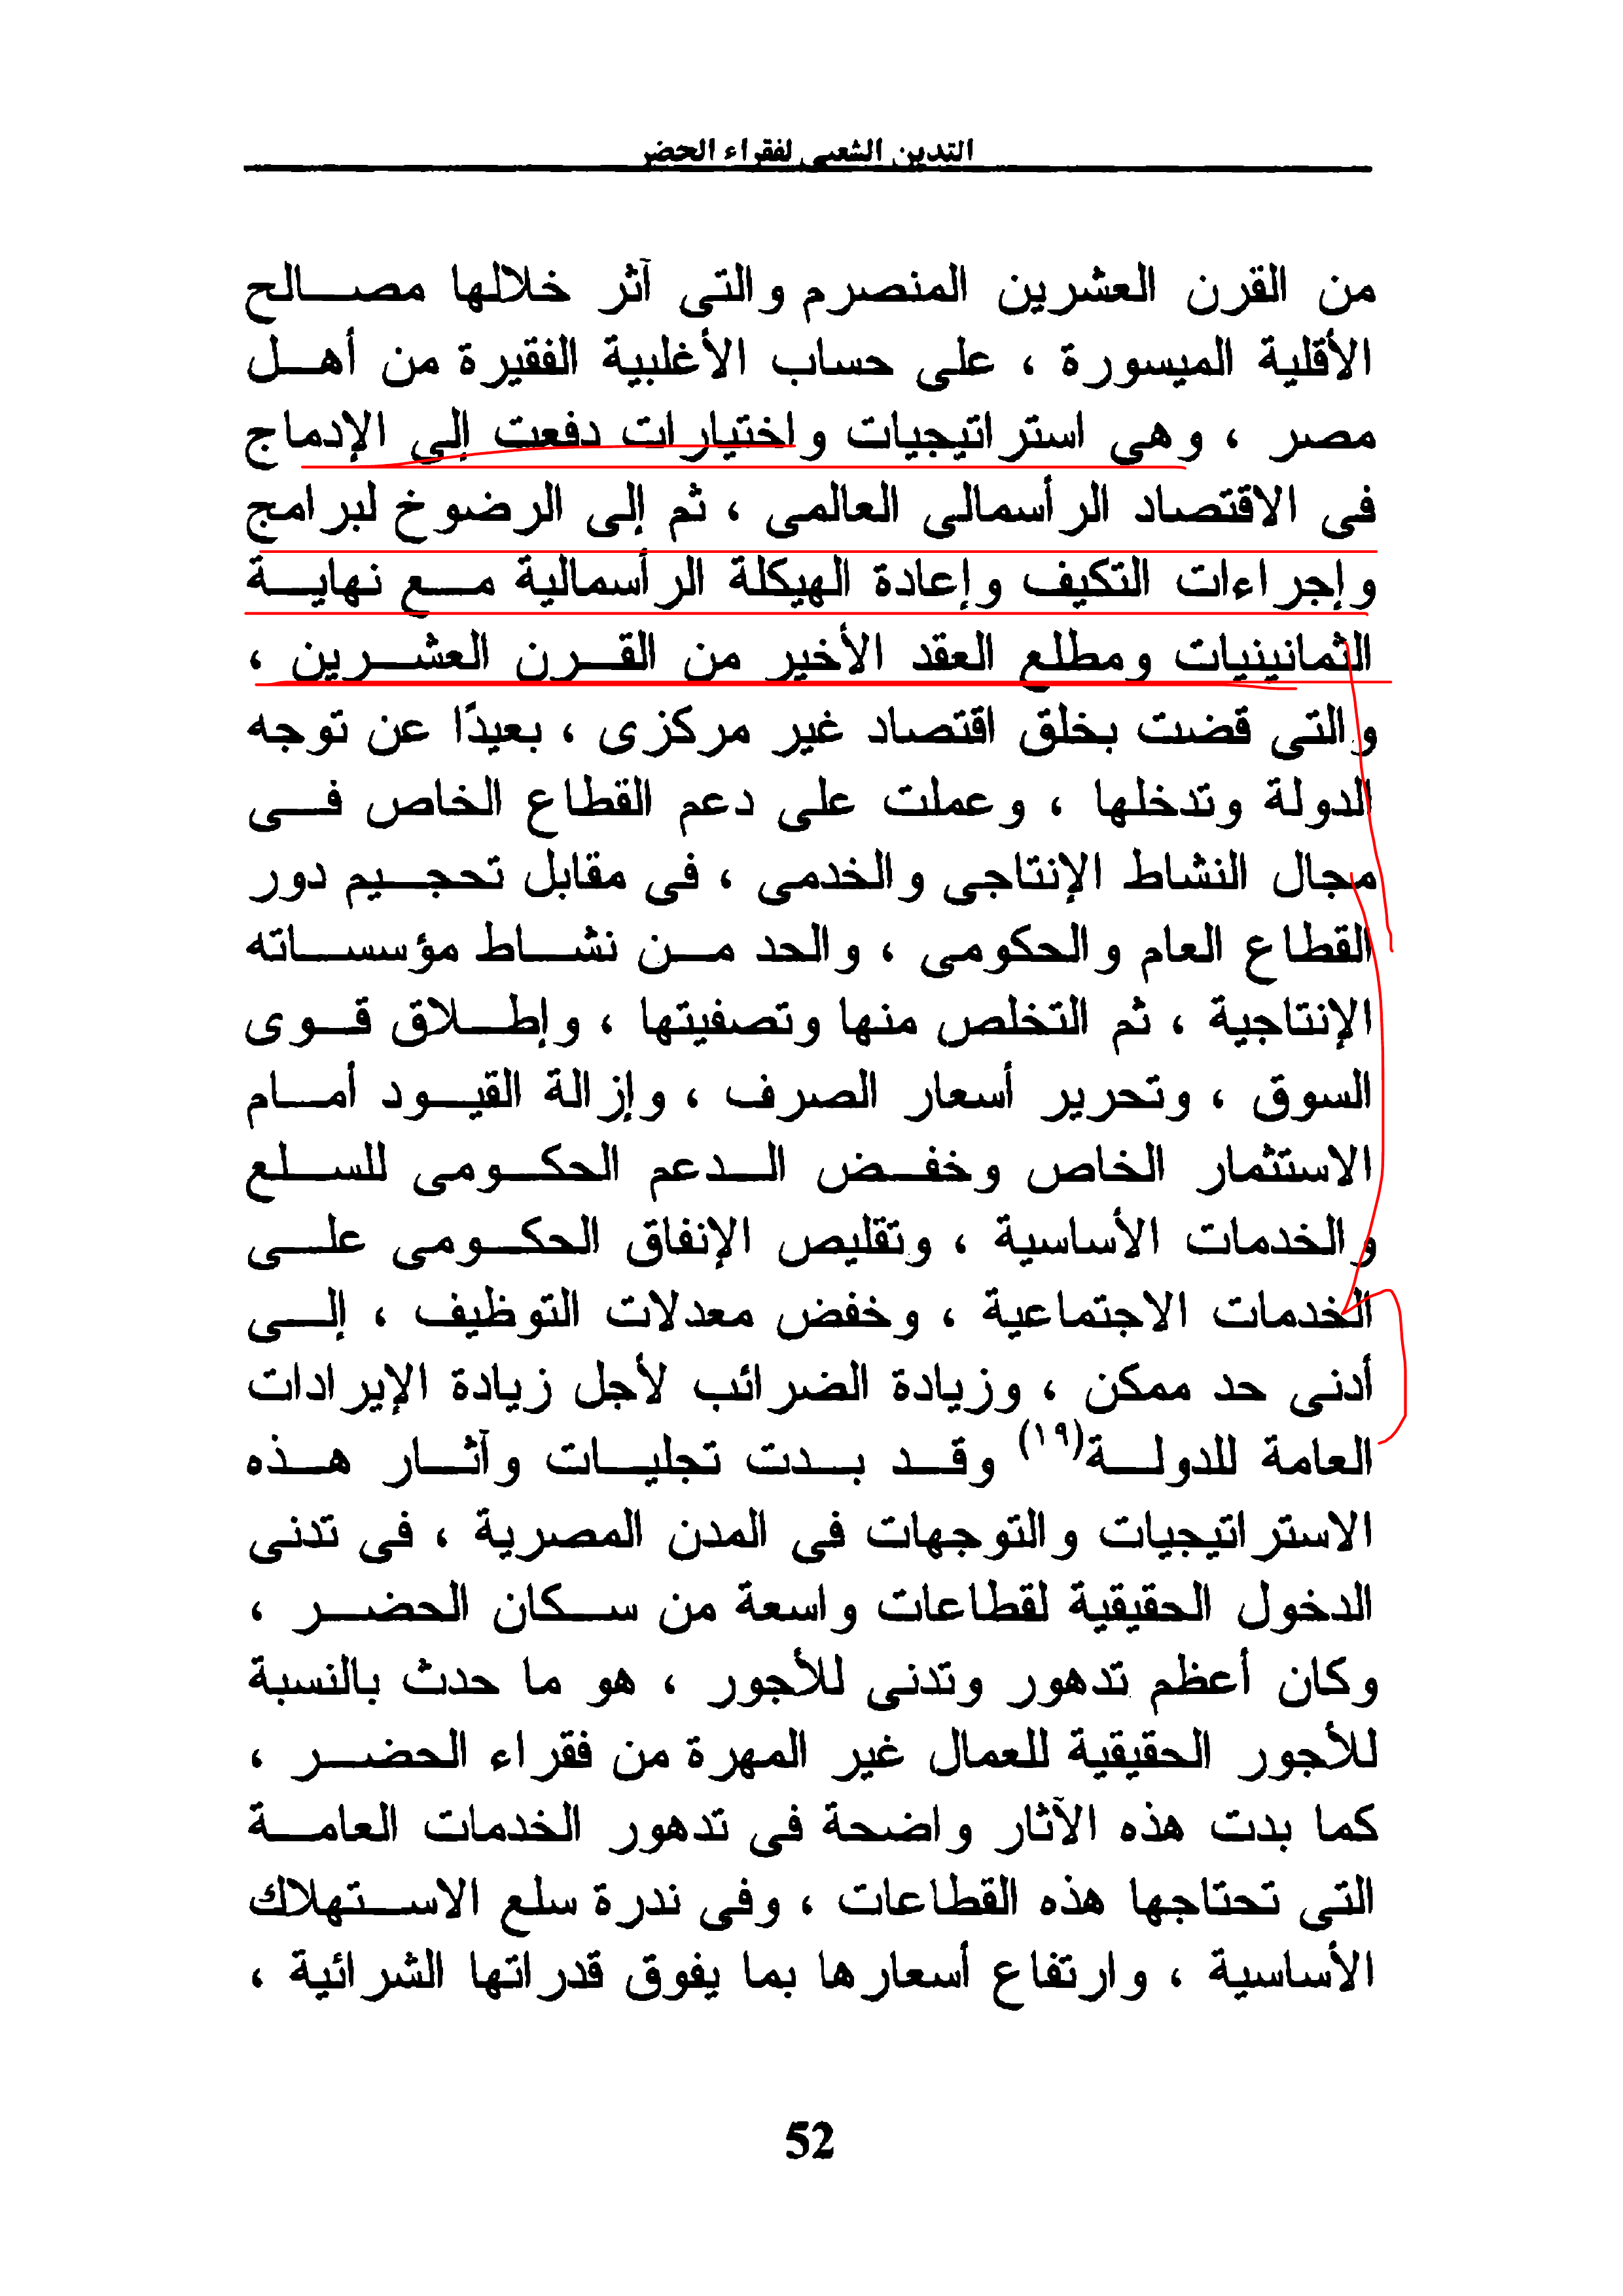 التدين الشعبى لفقراء الحضر
من القرن العشرين المنصرم والتى آثر خلالها مصالح
الأقلية الميسورة ، على حساب الأغلبية الفقيرة من أهل
مصر ، وهى استراتيجيات واختيارات دفعت إلى الإدماج
فى الاقتصاد الرأسمالى العالمى ، ثم إلى الرضوخ لبرامج
وإجراءات التكيف وإعادة الهيكلة الرأسمالية مع نهاية
الثمانينيات ومطلع العقد الأخير من القرن العشرين ،
والتى قضت بخلق اقتصاد غير مركزى ، بعيدًا عن توجه
الدولة وتدخلها ، وعملت على دعم القطاع الخاص فى
مجال النشاط الإنتاجى والخدمى ، فى مقابل تحجيم دور
القطاع العام والحكومى ، والحد من نشاط مؤسساته
الإنتاجية ، ثم التخلص منها وتصفيتها ، وإطلاق قوى
السوق ، وتحرير أسعار الصرف ، وإزالة القيود أمام
الاستثمار الخاص وخفض الدعم الحكومى للسلع
والخدمات الأساسية ، وتقليص الإنفاق الحكومى على
الخدمات الاجتماعية ، وخفض معدلات التوظيف ، إلى
أدنى حد ممكن ، وزيادة الضرائب لأجل زيادة الإيرادات
العامة للدولة(١٩) وقد بدت تجليات وآثار هذه
الاستراتيجيات والتوجهات فى المدن المصرية ، فى تدنى
الدخول الحقيقية لقطاعات واسعة من سكان الحضر ،
وكان أعظم تدهور وتدنى للأجور ، هو ما حدث بالنسبة
للأجور الحقيقية للعمال غير المهرة من فقراء الحضر ،
كما بدت هذه الآثار واضحة فى تدهور الخدمات العامة
التى تحتاجها هذه القطاعات ، وفى ندرة سلع الاستهلاك
الأساسية ، وارتفاع أسعارها بما يفوق قدراتها الشرائية ،
52